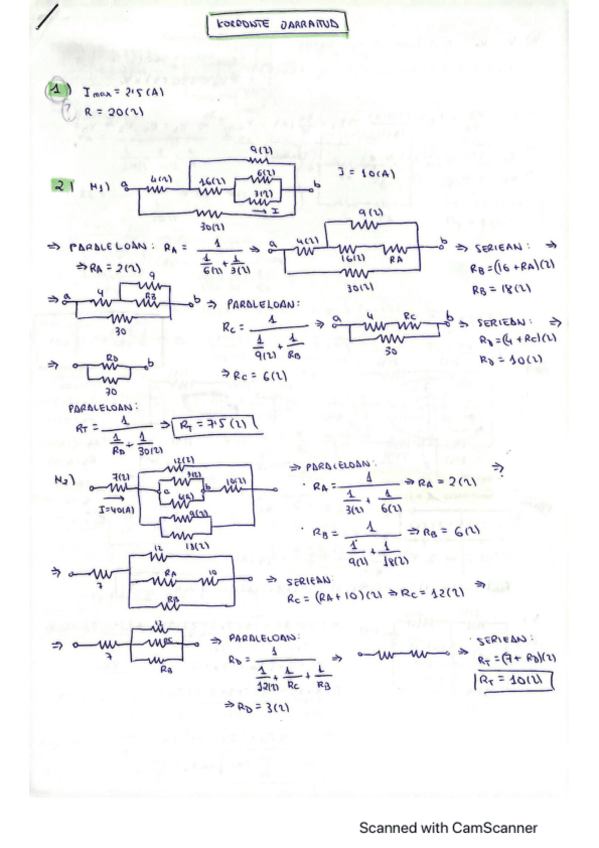 KORRONTE JARRAITUA
1) I max = 2'5 (A)
R = 20 (Ω)
2) M1) a 4(Ω) 16(Ω) 9(Ω) 6(Ω) 3(Ω) → I b I = 10 (A)
30(Ω)
⇒ PARALELOAN: RA = 1 / (1/6(Ω) + 1/3(Ω)) ⇒ a 4(Ω) 9(Ω) 16(Ω) RA 30(Ω) b ⇒ SERIEAN: ⇒
⇒ RA = 2(Ω)
RB = (16 + RA)(Ω)
RB = 18(Ω)
⇒ a 4 9 RB b 30 ⇒ PARALELOAN:
RC = 1 / (1/9(Ω) + 1/RB) ⇒ a 4 RC b 30 ⇒ SERIEAN: ⇒
RD = (4 + RC)(Ω)
RD = 10(Ω)
⇒ RC = 6(Ω)
⇒ a RD b 30
PARALELOAN:
RT = 1 / (1/RD + 1/30(Ω)) ⇒ RT = 7'5 (Ω)
M2) 7(Ω) 12(Ω) 3(Ω) a b 6(Ω) 10(Ω) 9(Ω) 18(Ω)
I = 40(A)
⇒ PARALELOAN: ⇒
· RA = 1 / (1/3(Ω) + 1/6(Ω)) ⇒ RA = 2(Ω)
· RB = 1 / (1/9(Ω) + 1/18(Ω)) ⇒ RB = 6(Ω)
⇒ 7 12 RA 10 RB ⇒ SERIEAN
RC = (RA + 10)(Ω) ⇒ RC = 12(Ω) ⇒
⇒ 7 12 RC RB ⇒ PARALELOAN:
RD = 1 / (1/12(Ω) + 1/RC + 1/RB) ⇒ ⇒ SERIEAN:
RT = (7 + RD)(Ω)
RT = 10(Ω)
⇒ RD = 3(Ω)
Scanned with CamScanner